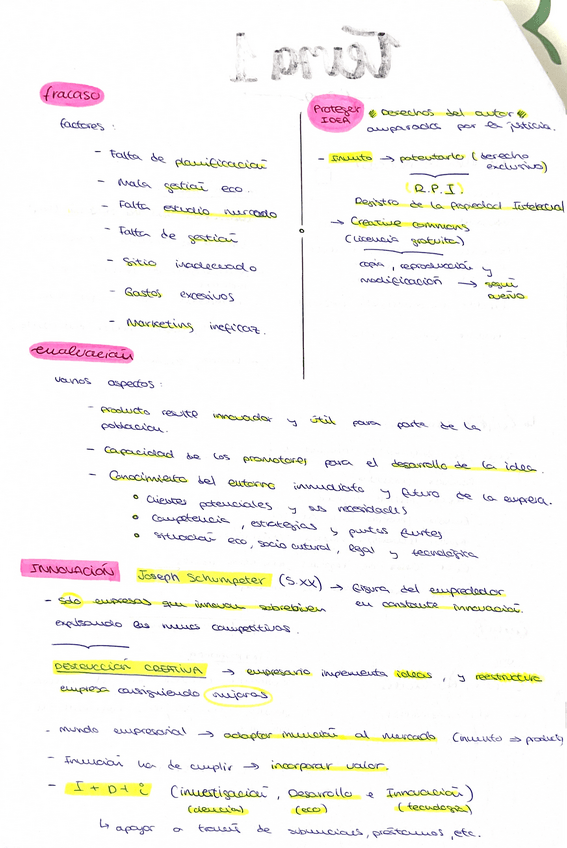 Tema 1
fracaso
factores:
- Falta de planificación
- Mala gestión eco.
- Falta estudio mercado
- Falta de gestión
- Sitio inadecuado
- Gastos excesivos
- Marketing ineficaz.
Proteger IDEA
Derechos del autor
amparados por la justicia.
- Invento → patentarlo (derecho
exclusivo)
(R.P.I)
Registro de la Propiedad Intelectual
→ Creative commons
(Licencia gratuita)
copia, reproducción y
modificación → según
dueño
evaluación
varios aspectos:
- producto resulte innovador y útil para parte de la
población.
- Capacidad de los promotores para el desarrollo de la idea.
- Conocimiento del entorno inmediato y futuro de la empresa.
• Clientes potenciales y sus necesidades
• Competencia, estrategias y puntos fuertes
• Situación eco, socio cultural, legal y tecnológica
INNOVACIÓN Joseph Schumpeter (S.XX) → figura del emprededor
en constante innovación.
- Sólo empresas que innovan sobrebiven
expulsando las menos competitivas.
DESTRUCCIÓN CREATIVA → empresario implementa ideas, y reestructura
empresa consiguiendo mejoras
- mundo empresarial → adaptar invención al mercado (invento → product
- Innovación ha de cumplir → incorporar valor.
- I + D + i (investigación, Desarrollo e Innovación)
(ciencia) (eco) (tecnología)
↳ apoyar a través de subvenciones, préstamos, etc.